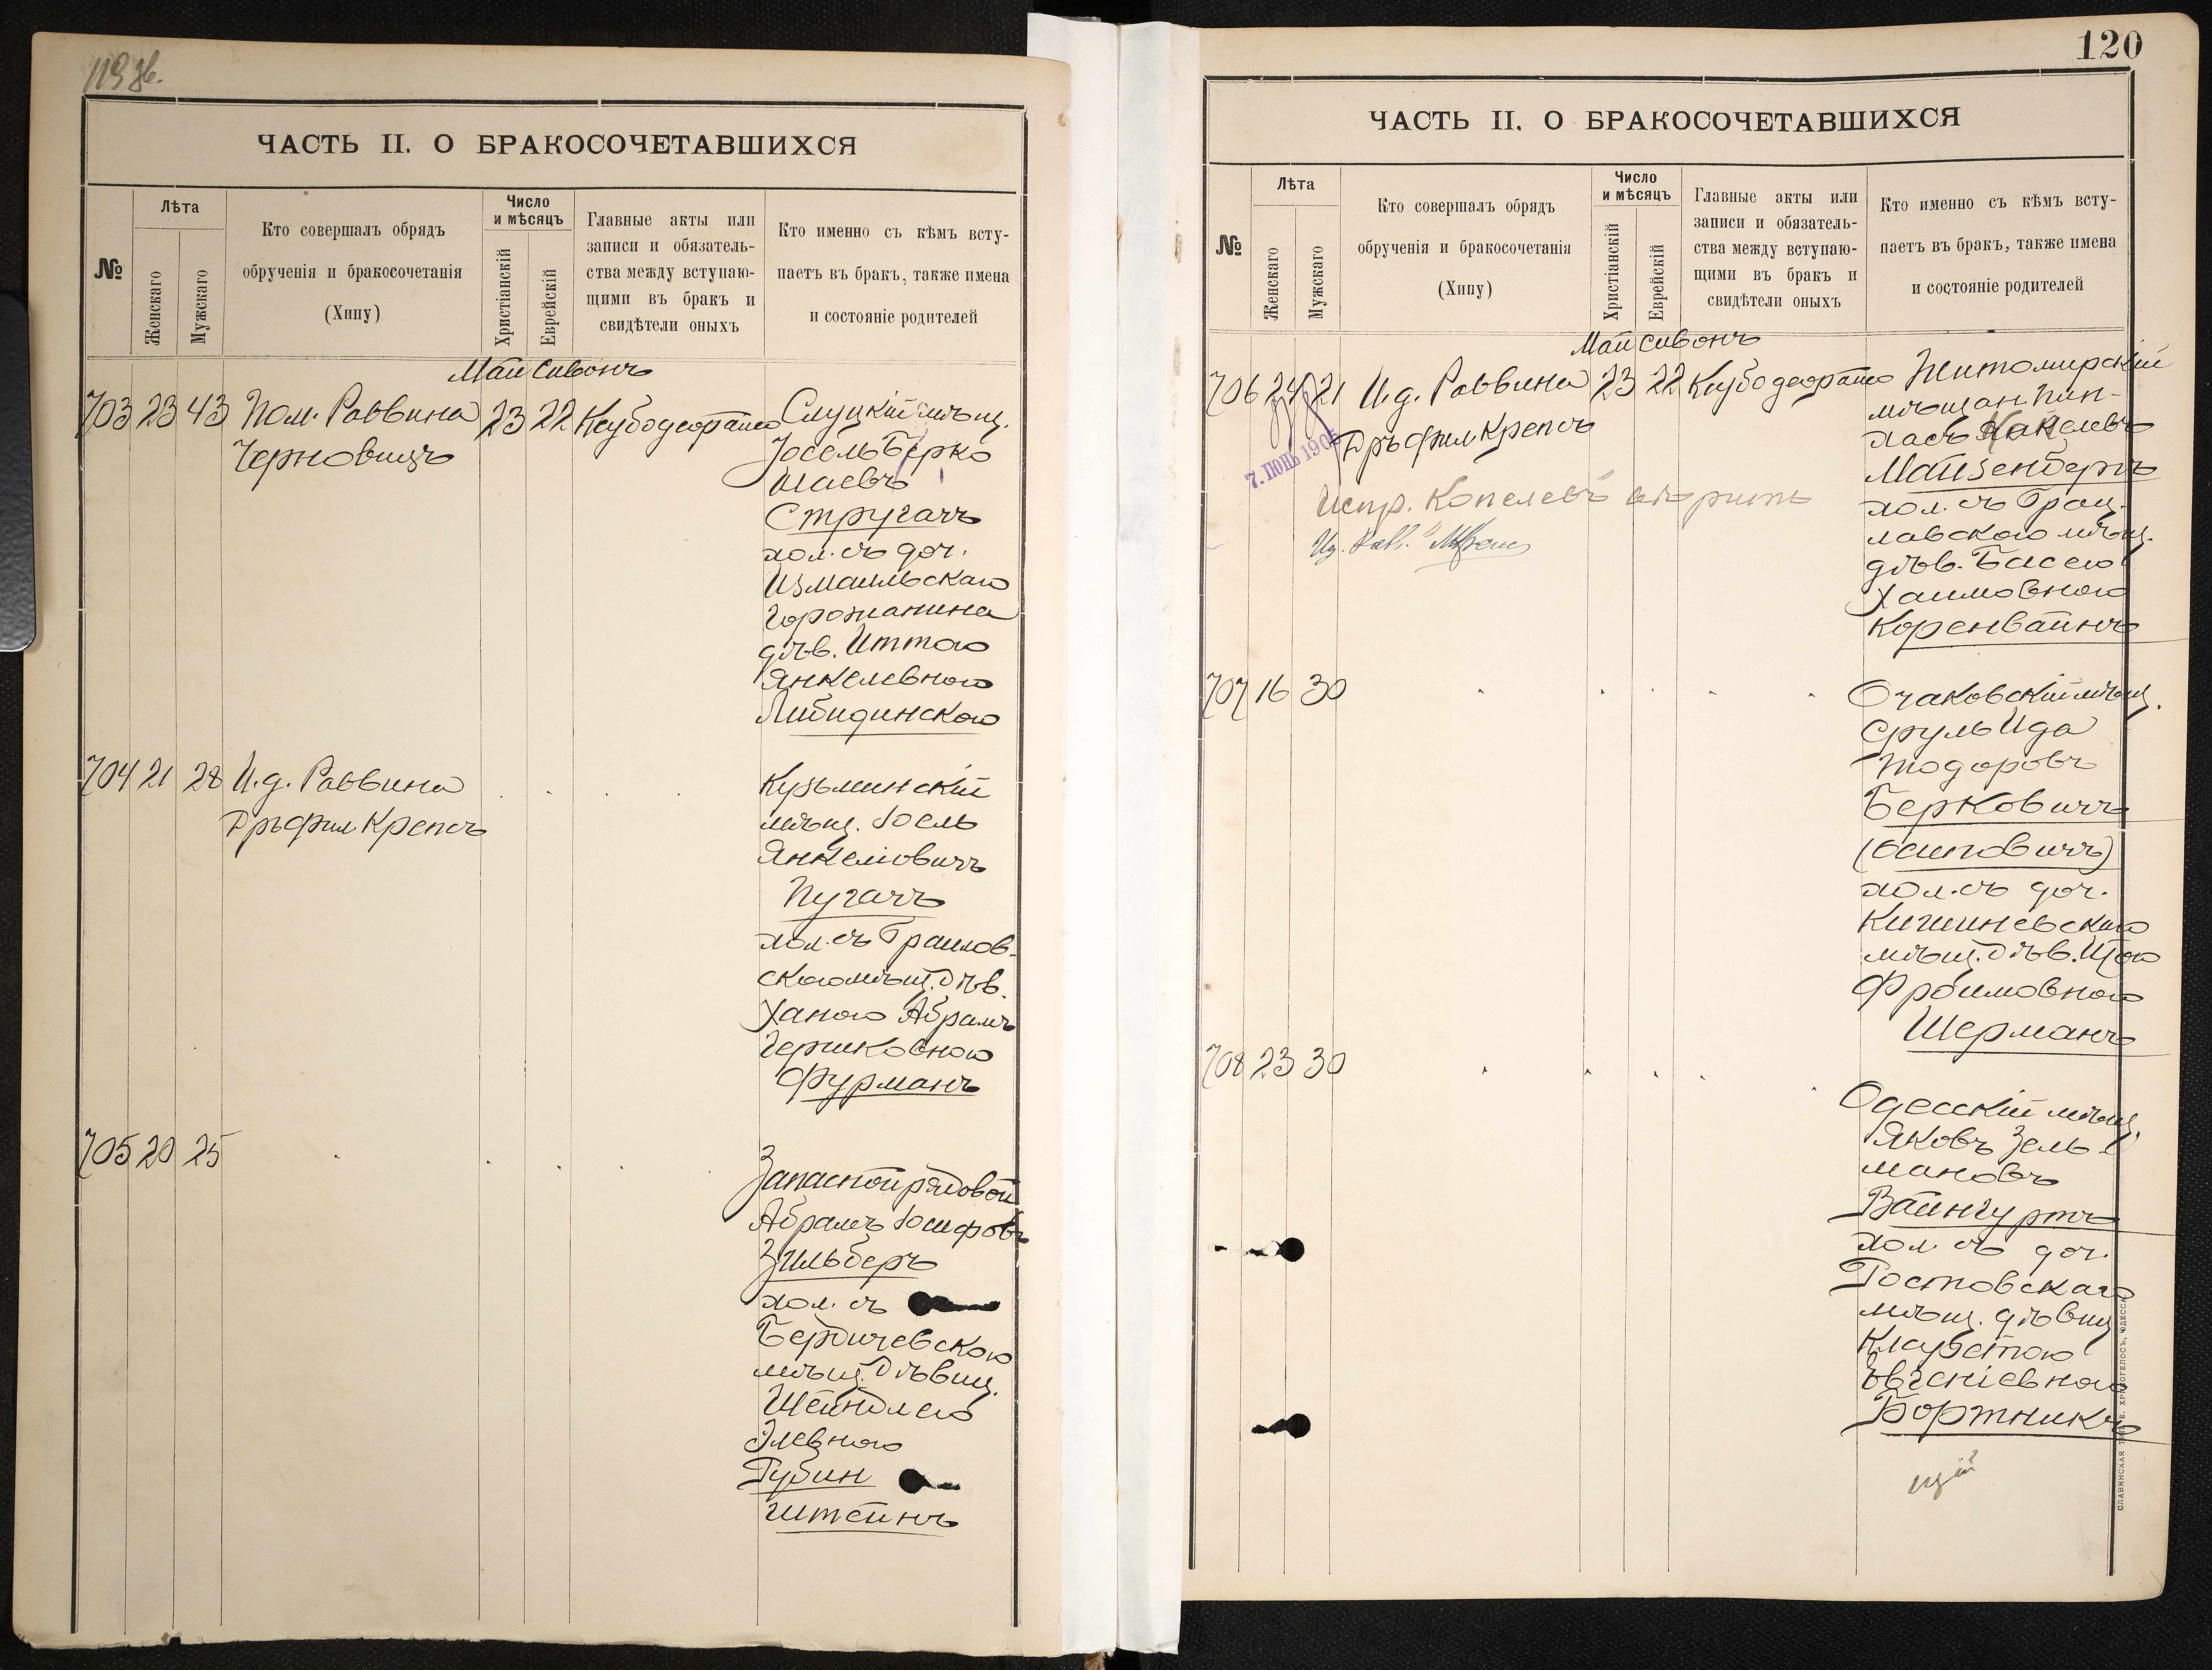 119 об.
ЧАСТЬ II. О БРАКОСОЧЕТАВШИХСЯ
№
Лѣта
Женскаго
Мужскаго
Кто совершалъ обрядъ
обрученія и бракосочетанія
(Хипу)
Число
и мѣсяцъ
Христіанскій
Еврейскій
Главные акты или
записи и обязатель-
ства между вступаю-
щими въ бракъ и
свидѣтели оныхъ
Кто именно съ кѣмъ всту-
паетъ въ бракъ, также имена
и состояніе родителей
Май Сивонъ
703 23 43 Пом. Раввина 23 22 Слуцкій мѣщ.
Черновицъ
Іосель Берко
Шаевъ
Стругачъ
хол. съ доч.
Измаильскаго
Горожанина
дѣв. Иттою
Янкелевною
Либидинского
704 21 28 И.д. Раввина
Кузьминскій
мѣщ. Іосль
Янкеліовичъ
Пугачъ
хол. съ Граилов-
скою мѣщ. дѣв.
Ханою Абрамъ
Гершковною
Фурманъ
705 20 25
Запасной рядовой
Абрамъ Іосифовъ
Зильберъ
хол. съ
Бердичевскою
мѣщ. дѣвиц.
Шейндлею
Элевною
Рубин
штейнъ
120
ЧАСТЬ II. О БРАКОСОЧЕТАВШИХСЯ
№
Лѣта
Женскаго
Мужскаго
Кто совершалъ обрядъ
обрученія и бракосочетанія
(Хипу)
Число
и мѣсяцъ
Христіанскій
Еврейскій
Главные акты или
записи и обязатель-
ства между вступаю-
щими въ бракъ и
свидѣтели оныхъ
Кто именно съ кѣмъ всту-
паетъ въ бракъ, также имена
и состояніе родителей
Май Сивонъ
706 24 21 И.д. Раввина 23 22 Житомирскій
мѣщан. Пин-
хасъ
Майзенбергъ
хол. съ Брац-
лавскою мѣщ.
дѣв. Басею
Хаимовною
Коренвайнъ
7. ІЮНЬ 190
Испр. Копелевъ вѣрить
707 16 30
Очаковскій мѣщ.
Сруль Ида
Тодоровъ
Берковичъ
(Осиповичъ)
хол. съ доч.
Кишиневскаго
мѣщ. дѣв. Итою
Фроимовною
Шерманъ
708 23 30
Одесскій мѣщ.
Яковъ Зель-
мановъ
Вайнгуртъ
хол. съ доч.
Ростовскаго
мѣщ. дѣвиц
Кларетою
Евгеніевною
Бортникъ
СЛАВЯНСКАЯ ТИП. Е. ХРИСОГЕЛОСЪ, ОДЕССА